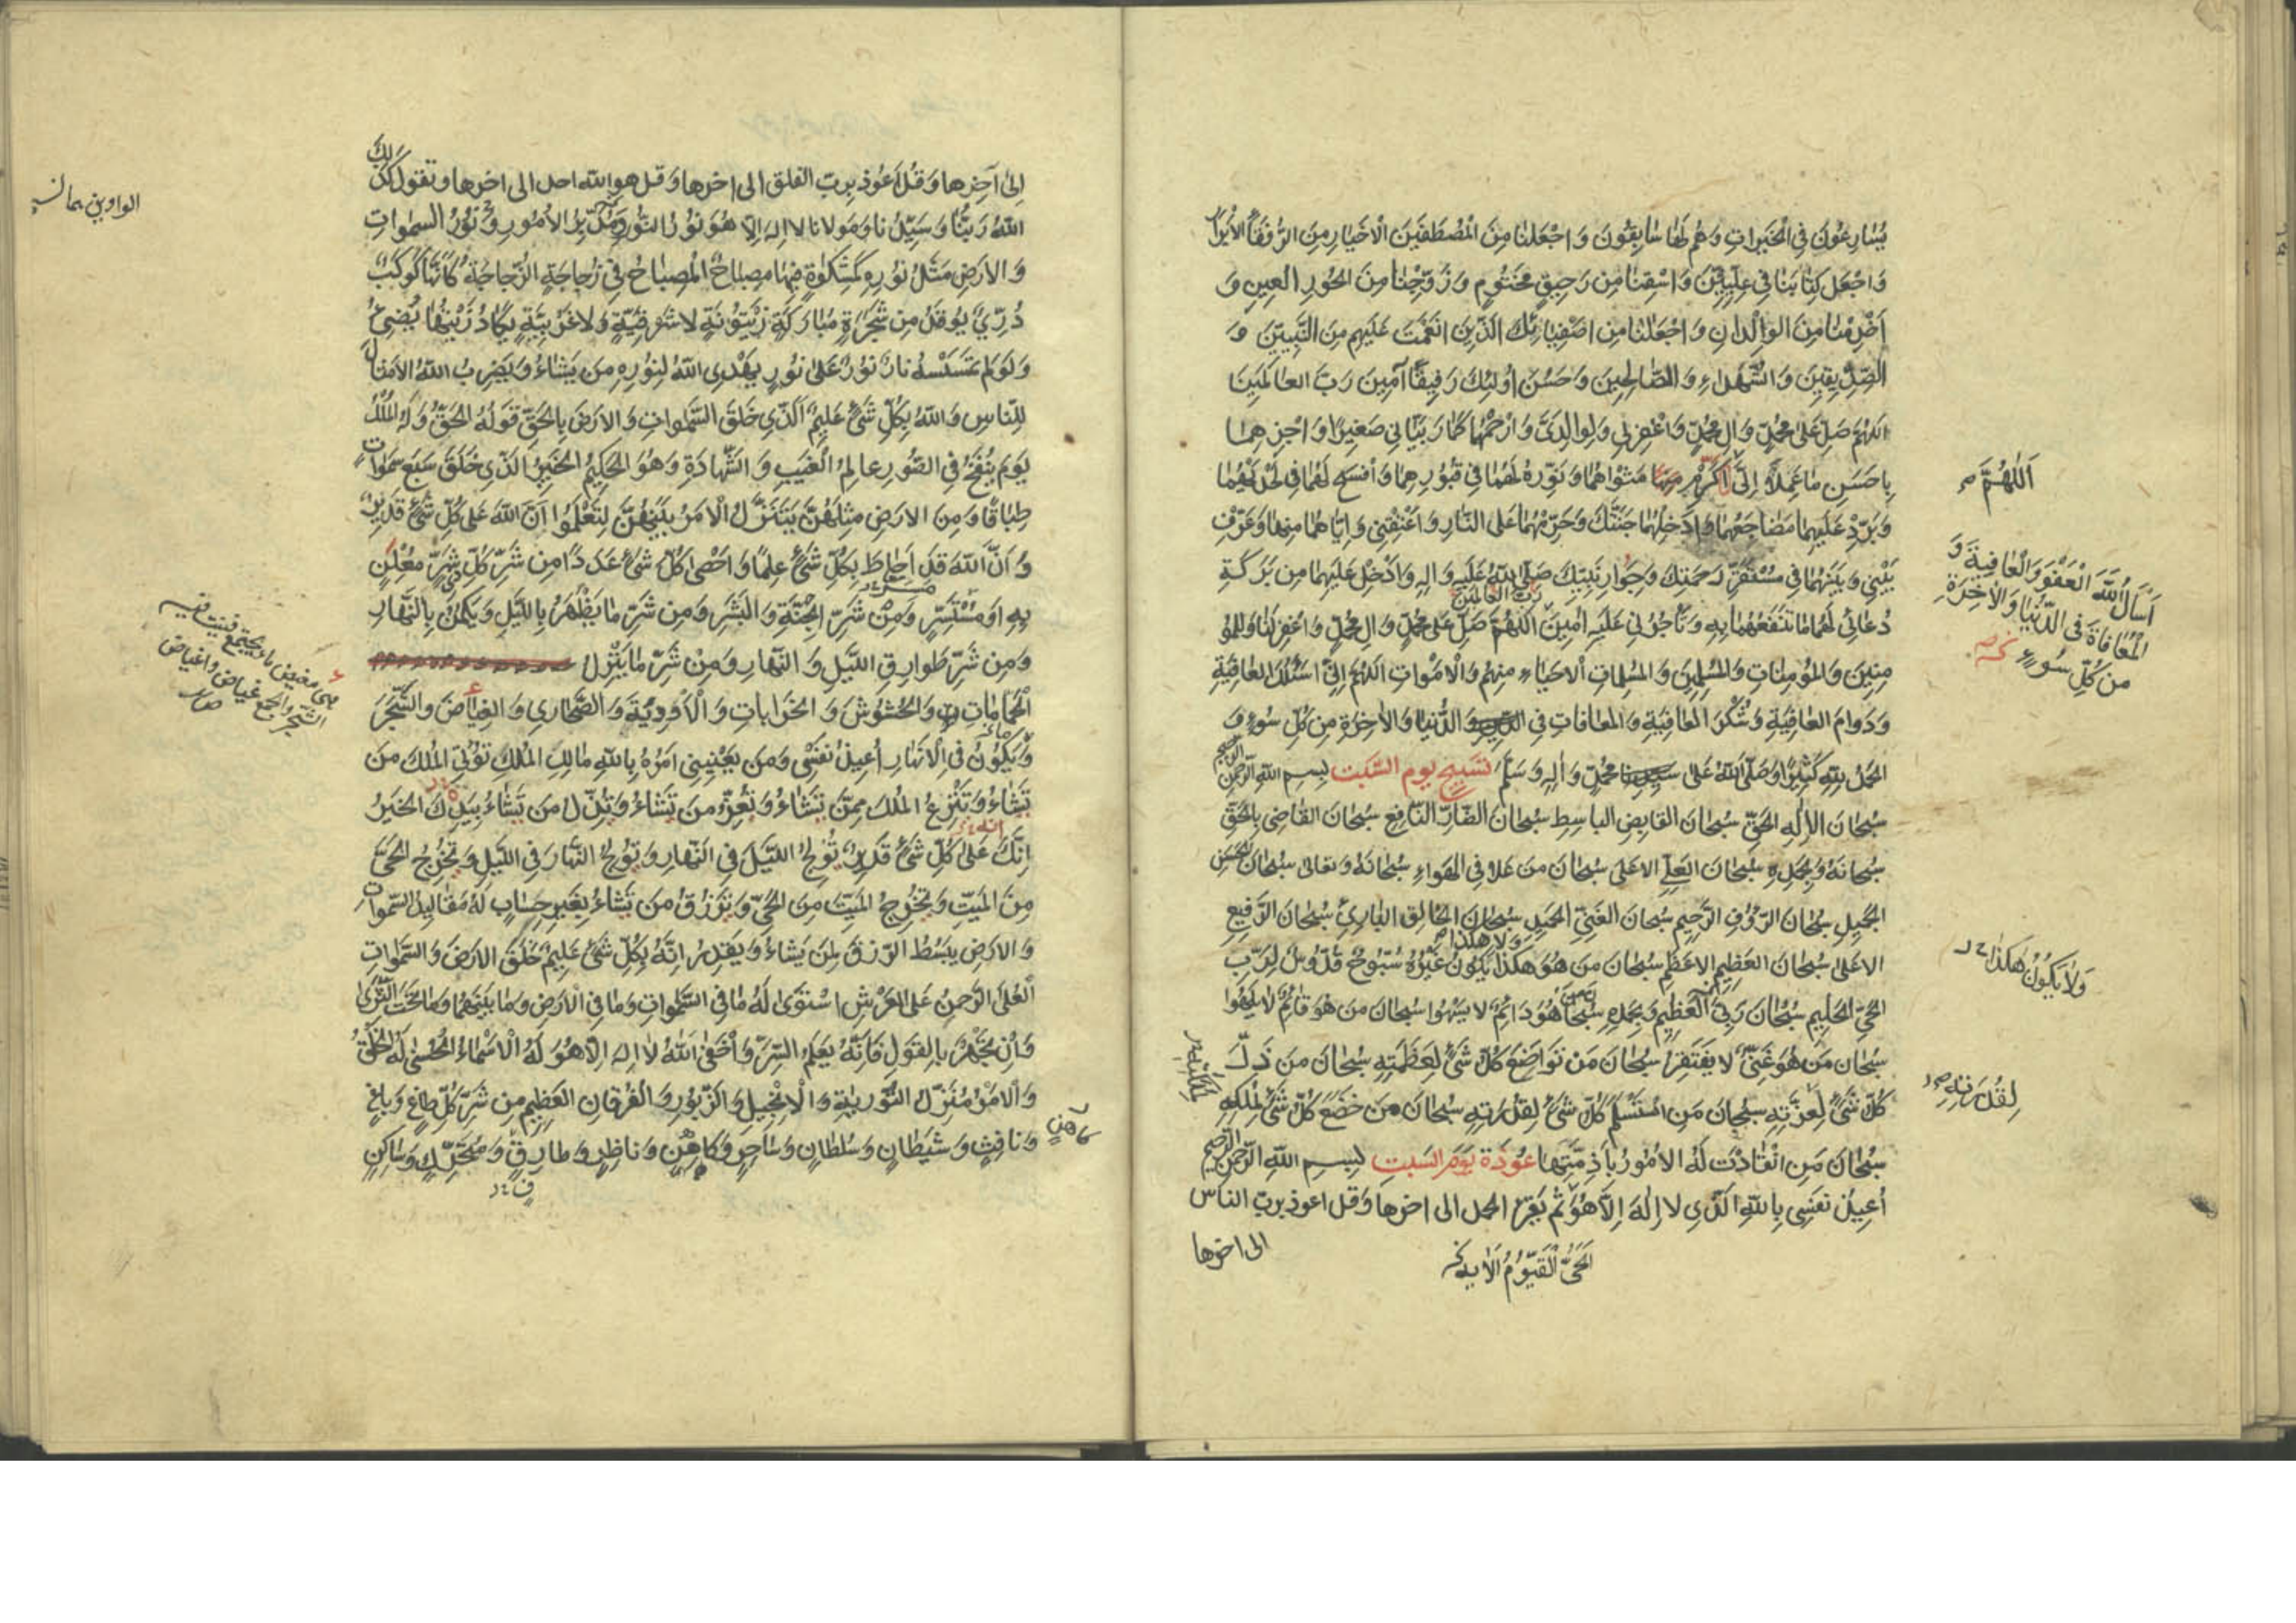 يُسٰارِعُونَ فِي الْخَيراتِ وَهُم لَهٰا سٰابِقُونَ وَاجْعَلنٰا مِنَ الْمُصْطَفَينَ الْاَخيٰارِ مِنَ الرُّفَقٰآءِ الاَبْرٰارِ
وَاجْعَل كِتٰابَنٰا فِي عِلِّيّينَ وَاسْقِنٰا مِن رَحيقٍ مَختُومٍ وَزَوِّجْنٰا مِنَ الحُورِ العِينِ وَ
اَخْدِمْنٰا مِنَ الوِلْدانِ وَاجْعَلنٰا مِن اَصْفِيٰائِكَ الَّذِينَ اَنعَمْتَ عَلَيهِم مِنَ النَّبِيّينَ وَ
الصِّدّيقِينَ وَالشُّهَدٰاءِ وَالصّٰالِحِينَ وَحَسُنَ اُولٰئِكَ رَفِيقًا آمِينَ رَبَّ العٰالَمِينَ
اللهُمَّ صَلِّ عَلىٰ مُحَمَّدٍ وَآلِ مُحَمَّدٍ وَاغْفِرلِي وَلِوالِدَيَّ وَارْحَمْهُما كَمٰا رَبَّيٰانِي صَغِيرًا وَاجْزِهِمٰا
بِاَحسَنِ مٰا عَمِلاٰ اِلَيَّ اَكْرِمْ مَثْوٰاهُمٰا وَنَوِّرْ لَهُمٰا فِي قُبُورِهِمٰا وَافْسَح لَهُمٰا فِي لَحْدَيْهِمٰا
اَللّٰهُمَّ
وَبَرِّدْ عَلَيهِمٰا مَضٰاجِعَهُمٰا وَاَدْخِلْهُمٰا جَنَّتَكَ وَحَرِّمْهُمٰا عَلَى النّٰارِ وَاَعْتِقْنِي وَاِيّٰاهُمٰا مِنهٰا وَعَرِّف
بَيْنِي وَبَيْنَهُمٰا فِي مُسْتَقَرٍّ رَحمَتِكَ وَجِوٰارِ نَبِيِّكَ صَلَّى اللهُ عَلَيهِ وَالِهِ وَاَدْخِلْ عَلَيهِمٰا مِن بَرَكَةِ
اَسْاَلُ اللّٰهَ الْعَفْوَ وَالْعٰافِيَةَ وَ
الْمُعٰافٰاةَ فِي الدُّنْيٰا وَالاٰخِرَةِ
مِن كُلِّ سُوءٍ
دُعٰائِي لَهُمٰا مٰا تَنْفَعُهُمٰا بِهِ وَتَأْجُرُنِي عَلَيهِ اٰمِينَ رَبَّ العٰالَمِينَ اللهُمَّ صَلِّ عَلىٰ مُحَمَّدٍ وَالِ مُحَمَّدٍ وَاغْفِرلَنٰا وَلِلمُؤ
مِنِينَ وَالمُؤمِنٰاتِ وَالمُسْلِمِينَ وَالمُسْلِمٰاتِ الْاَحيٰاءِ مِنهُم وَالْاَمْوٰاتِ اللهُمَّ اِنِّي اَسْئَلُكَ العٰافِيَةِ
وَدَوٰامَ العٰافِيَةِ وَشُكْرَ العٰافِيَةِ وَالمُعٰافٰاتِ فِي الدُّنيٰا وَالاٰخِرَةِ مِن كُلِّ سُوءٍ وَ
الحَمْدُ لِلّٰهِ كَثِيرًا وَصَلَّى اللهُ عَلىٰ مُحَمَّدٍ وَاٰلِهِ وَسَلَّمَ تَسْبِيحِ يوم السَّبت بسم الله الرحمن الرحيم
سُبْحٰانَ الاِلٰهِ الحَقِّ سُبحٰانَ القٰابِضِ البٰاسِطِ سُبحٰانَ الضّٰارِّ النّٰافِعِ سُبحٰانَ القٰاضِي بالحَقِّ
سُبحٰانَهُ وَبِحَمدِهِ سُبحٰانَ العَلِيِّ الاعلىٰ سُبحٰانَ مَن عَلا فِي الهَوٰاءِ سُبحٰانَهُ وَتعالىٰ سُبحٰانَ الحَسَنِ
الجَمِيلِ سُبحٰانَ الرَّؤُفِ الرَّحِيمِ سُبحانَ الغَنِيِّ الحَمِيدِ سُبحٰانَ الخٰالِقِ البٰارِئِ سُبحٰانَ الرَّفِيعِ
الاعَلىٰ سُبحٰانَ العَظِيمِ الاَعظَمِ سُبحٰانَ مَن هُوَ هٰكَذٰا وَلا هكذا يَكُونُ غَيرُهُ سُبُّوحٌ قُدُّوسٌ لِرَبّي
وَلاٰ يَكُونُ هٰكَذٰا
الحَيِّ الحَلِيمِ سُبحٰانَ رَبِّيَ العَظِيمِ وَبِحَمدِهِ سُبحٰانَ مَن هُوَ دٰائِمٌ لا يَسْهُوا سُبحٰانَ مَن هُوَ قٰائِمٌ لا يَلْهُوا
سُبحٰانَ مَن هُوَ غَنِيٌّ لا يَفْتَقِرُ سُبحٰانَ مَن تَوٰاضَعَ كُلُّ شَيْءٍ لِعَظَمَتِهِ سُبحٰانَ مَن ذَلَّ
كُلُّ شَيْءٍ لِعِزَّتِهِ سُبحٰانَ مَنِ اسْتَسْلَمَ كُلُّ شَيْءٍ لِقُدْرَتِهِ سُبحٰانَ مَن خَضَعَ كُلُّ شَيْءٍ لِمُلكِهِ
لِقُدرَتِهِ
سُبحٰانَ مَنِ انْقٰادَت لَهُ الاُمُورُ بِاَزِمَّتِهٰا عُوذَة يَوْمَ السَّبتِ بسم الله الرحمن الرحيم
اُعِيذُ نَفسِي بِاللهِ الَّذِي لا اِلٰهَ اِلاّٰ هُوَ ثُمَّ يَقرَءُ الحمد الى اخرها وَقل اعوذ بربّ الناس
الى اخرها
الحَيُّ الْقَيُّومُ الاٰيه
اِلىٰ آخِرِها وَقُل اَعُوذ بِرَبّ الفلق الى اخرها وَقل هو الله احد الى اخرها وتقول كذلك
اللهُ رَبُّنٰا وَسَيِّدُنا وَمَولانا لا اِلٰهَ اِلاّ هُوَ نُورُ النُّورِ وَمُدَبِّرُ الاُمُورِ نُورُ السمٰواتِ
وَالاَرضِ مَثَلُ نُورِهِ كَمِشكٰوةٍ فِيهٰا مِصبٰاحٌ المِصبٰاحُ فِي زُجاجَةٍ الزُّجاجَةُ كَاَنَّهٰا كَوكَبٌ
دُرِّيٌّ يُوقَدُ مِن شَجَرَةٍ مُبٰارَكَةٍ زَيْتُونَةٍ لا شَرقِيَّةٍ وَلا غَربِيَّةٍ يَكٰادُ زَيْتُهٰا يُضِيءُ
وَلَو لَم تَمْسَسْهُ نارٌ نُورٌ عَلىٰ نُورٍ يَهْدِي اللهُ لِنُورِهِ مَن يَشٰاءُ وَيَضرِبُ اللهُ الاَمثٰالَ
لِلنّٰاسِ وَاللهُ بِكُلِّ شَيْءٍ عَلِيمٌ اَلَّذِي خَلَقَ السَّمٰواتِ وَالاَرضَ بِالحَقِّ قَولُهُ الحَقُّ وَلَهُ المُلكُ
يَومَ يُنفَخُ فِي الصُّورِ عٰالِمُ الغَيبِ وَالشَّهٰادَةِ وَهُوَ الحَكِيمُ الخَبِيرُ الَّذِي خَلَقَ سَبعَ سَمٰواتٍ
طِبٰاقًا وَمِنَ الاَرضِ مِثلَهُنَّ يَتَنَزَّلُ الاَمرُ بَيْنَهُنَّ لِتَعلَمُوا اَنَّ اللهَ عَلىٰ كُلِّ شَيْءٍ قَدِيرٌ
وَاَنَّ اللهَ قَد اَحٰاطَ بِكُلِّ شَيْءٍ عِلمًا وَاَحْصىٰ كُلَّ شَيْءٍ عَدَدًا مِن شَرِّ كُلِّ ذِي شَرٍّ مُعْلِنٍ
بِهِ اَو مُسْتَسِرٍّ وَمِنْ شَرِّ الجِنَّةِ وَالبَشَرِ وَمِن شَرِّ مٰا يَظْهَرُ بِاللَّيلِ وَيَكمُنُ بِالنَّهٰارِ
وَمِن شَرِّ طَوارِقِ اللَّيلِ وَالنَّهارِ وَمِنْ شَرِّ مٰا يَنْزِلُ
الْحَمّٰامٰاتِ وَالحُشُوشَ وَالخَرٰابٰاتِ وَالْاَوْدِيَةَ وَالصَّحٰارِي وَالغِيٰاضَ وَالشَّجَرَ
وَيَكُونُ فِي الْاَنهٰارِ اُعِيذُ نَفْسِي وَمَن يَعْنِينِي اَمرُهُ بِاللهِ مٰالِكِ المُلكِ تُؤْتِي المُلكَ مَن
تَشٰاءُ وَتَنْزِعُ المُلكَ مِمَّن تَشٰاءُ وَتُعِزُّ مَن تَشٰاءُ وَتُذِلُّ مَن تَشٰاءُ بِيَدِكَ الخَيرُ
اِنَّكَ عَلىٰ كُلِّ شَيْءٍ قَدِيرٌ تُولِجُ اللَّيلَ فِي النَّهٰارِ وَتُولِجُ النَّهٰارَ فِي اللَّيلِ وَتُخرِجُ الحَيَّ
مِنَ المَيِّتِ وَتُخرِجُ المَيِّتَ مِنَ الحَيِّ وَتَرزُقُ مَن تَشٰاءُ بِغَيرِ حِسٰابٍ لَهُ مَقٰالِيدُ السَّمٰواتِ
وَالاَرضِ يَبسُطُ الرِّزقَ لِمَن يَشٰاءُ وَيَقدِرُ اِنَّهُ بِكُلِّ شَيْءٍ عَلِيمٌ خَلَقَ الاَرضَ وَالسَّمٰواتِ
الْعُلىٰ الرَّحمٰنُ عَلَى العَرْشِ اسْتَوىٰ لَهُ مٰا فِي السَّمٰواتِ وَمٰا فِي الاَرضِ وَمٰا بَيْنَهُمٰا وَمٰا تَحتَ الثَّرىٰ
وَاِن تَجْهَرْ بِالقَولِ فَاِنَّهُ يَعلَمُ السِّرَّ وَاَخْفىٰ اَللهُ لا اِلٰهَ اِلاّ هُوَ لَهُ الْاَسْمٰاءُ الحُسنىٰ لَهُ الخَلْقُ
وَالاَمْرُ مُنَزِّلُ التَّوريٰةِ وَالْاِنْجِيلِ وَالزَّبُورِ وَالفُرقٰانِ العَظِيمِ مِن شَرِّ كُلِّ طٰاغٍ وَبٰاغٍ
وَنٰافِثٍ وَشَيطٰانٍ وَسُلطٰانٍ وَسٰاحِرٍ وَكاهِنٍ وَناظِرٍ وَطارِقٍ وَمُتَحَرِّكٍ وَسٰاكِنٍ
كاهنٍ